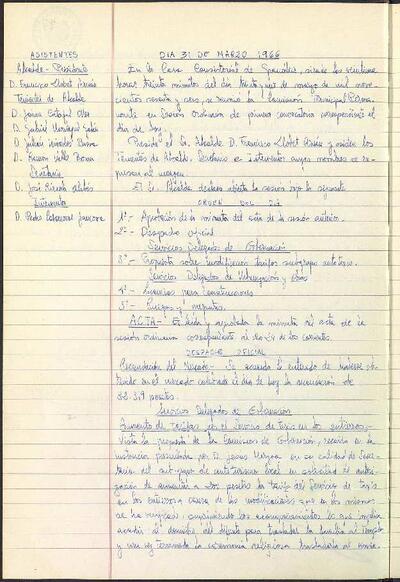 ASISTENTES
Alcalde - Presidente
D. Francisco Llobet Arnán
Tenientes de Alcalde
D. Jaime
D. Gabriel
D. Julian
D. Ramon Valls
Secretario
D. José
Interventor
D. Pedro
DIA 31 DE MARZO 1966
En la Casa Consistorial de Granollers, siendo las veintiuna
horas treinta minutos del día treinta y uno de marzo de mil nove-
cientos sesenta y seis, se reunió la Comisión Municipal Perma-
nente en sesión ordinaria de primera convocatoria correspondiente al
día de hoy.
Preside el Sr. Alcalde D. Francisco Llobet Arnán y asisten los
Tenientes de Alcalde, Secretario e Interventor cuyos nombres se ex-
presan al margen.
El Sr. Alcalde declara abierta la sesión bajo la siguiente
ORDEN DEL DIA
1º.- Aprobación de la minuta del acta de la sesión anterior.
2º.- Despacho oficial
Servicios Delegados de Gobernación
3º.- Propuesta sobre modificación tarifas subgrupo auto-taxis.
Servicios Delegados de Urbanización y Obras
4º.- Licencias para construcciones
5º.- Ruegos y preguntas.
ACTA.- Es leída y aprobada la minuta del acta de la
sesión ordinaria correspondiente al de los corrientes.
DESPACHO OFICIAL
Recaudación del Mercado.- Se acuerda el enterado de haberse ob-
tenido en el mercado celebrado el día de hoy la recaudación de
52.319 pesetas.
Servicios Delegados de Gobernación
Aumento de tarifas por el servicio de taxis en los entierros.-
Vista la propuesta de la Comisión de Gobernación, recaida en la
instancia presentada por D. Jaime en su calidad de Secre-
tario del sub-grupo de auto-turismo local en solicitud de autori-
zación de aumentar a pesetas la tarifa del servicio de taxis
en los entierros a causa de las modificaciones que en los mismos
se ha verificado, suprimiendo los acompañamientos lo que implica
acudir al domicilio del difunto para trasladar la familia al Templo
y una vez terminada la ceremonia religiosa trasladarla al cemen-